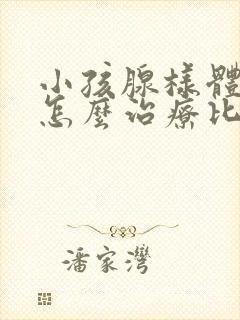 小孩腺樣體
怎麼治療比
潘家灣